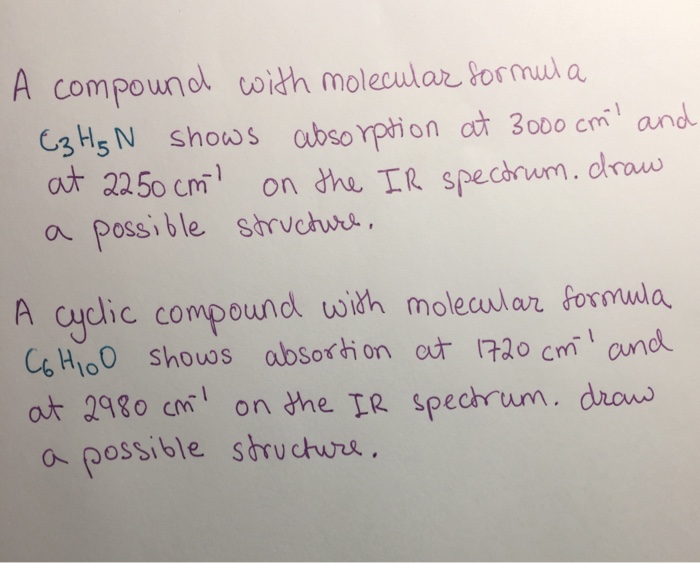 A compound with molecular formula
C₃H₅N shows absorption at 3000 cm⁻¹ and
at 2250 cm⁻¹ on the IR spectrum. draw
a possible structure.
A cyclic compound with molecular formula
C₆H₁₀O shows absortion at 1720 cm⁻¹ and
at 2980 cm⁻¹ on the IR spectrum. draw
a possible structure.